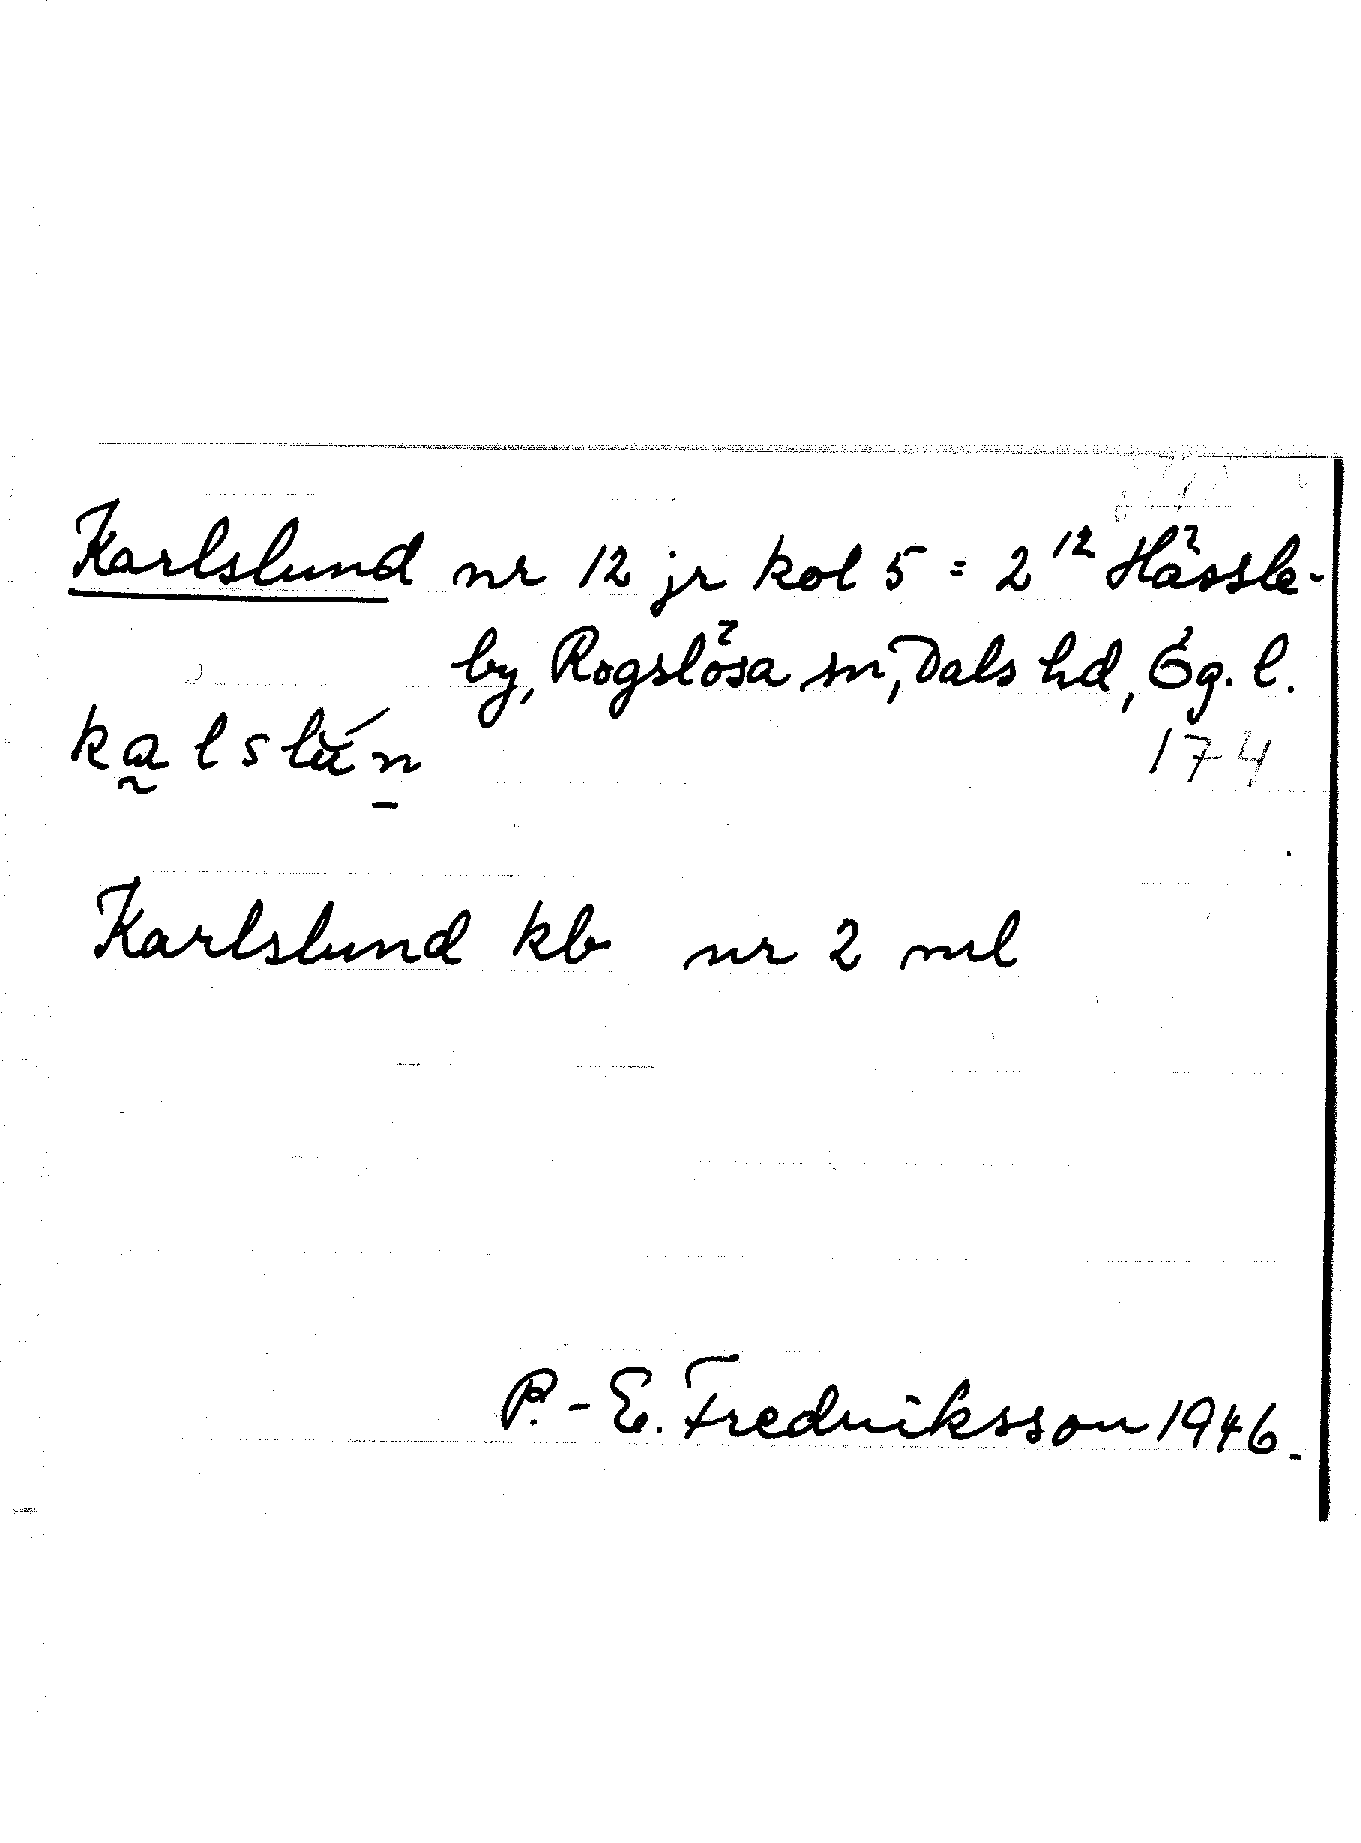 Karlslund nr 12 jr kol 5 = 2¹² Hässle-
by, Rogslösa sn, Dals hd, Ög. l.
ka̰lslún̠
174
Karlslund kb nr 2 ml
P.-E. Fredriksson 1946.